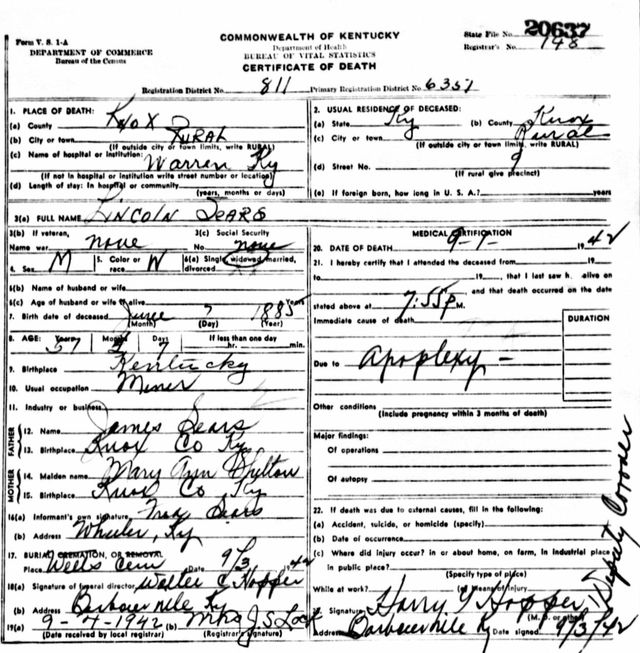 Form V. S. 1-A
DEPARTMENT OF COMMERCE
Bureau of the Census
COMMONWEALTH OF KENTUCKY
Department of Health
BUREAU OF VITAL STATISTICS
CERTIFICATE OF DEATH
State File No. 20637
Registrar's No. 148
Registration District No. 811 Primary Registration District No. 6351
1. PLACE OF DEATH:
(a) County Knox
(b) City or town Rural
(If outside city or town limits, write RURAL)
(c) Name of hospital or institution:
Warren Ky
(If not in hospital or institution write street number or location)
(d) Length of stay: In hospital or community
(years, months or days)
2. USUAL RESIDENCE OF DECEASED:
(a) State Ky (b) County Knox
(c) City or town Rural
(If outside city or town limits, write RURAL)
(d) Street No.
(If rural give precinct)
(e) If foreign born, how long in U. S. A.? years
3(a) FULL NAME Lincoln Sears
3(b) If veteran,
Name war none
3(c) Social Security
No. none
4. Sex M 5. Color or race W 6(a) Single, widowed, married, divorced
6(b) Name of husband or wife
6(c) Age of husband or wife if alive Years
7. Birth date of deceased June 7 1885
(Month) (Day) (Year)
8. AGE: Years Months Days If less than one day
57 2 7 hr. min.
9. Birthplace Kentucky
10. Usual occupation Miner
11. Industry or business
FATHER
12. Name James Sears
13. Birthplace Knox Co Ky
MOTHER
14. Maiden name Mary Ann
15. Birthplace Knox Co Ky
16(a) Informant's own signature Sears
(b) Address Wheeler, Ky
17. BURIAL, CREMATION, OR REMOVAL
Place Wells Cem 9/3 42
18(a) Signature of funeral director Walter C Hopper
(b) Address Barbourville Ky
19(a) 9-4-1942 (b) Mrs J. S. Lock
(Date received by local registrar) (Registrar's signature)
MEDICAL CERTIFICATION
20. DATE OF DEATH 9-1- 1942
21. I hereby certify that I attended the deceased from 19
to 19, that I last saw h alive on
and that death occurred on the date
stated above at 7:55 P M.
Immediate cause of death
DURATION
Due to Apoplexy -
Other conditions
(Include pregnancy within 3 months of death)
Major findings:
Of operations
Of autopsy
22. If death was due to external causes, fill in the following:
(a) Accident, suicide, or homicide (specify)
(b) Date of occurrence
(c) Where did injury occur? in or about home, on farm, in industrial place
in public place?
(Specify type of place)
While at work? (e) Means of injury
23. Signature Harry Hopper
(M. D. or other)
Deputy Coroner
Address Barbourville Ky Date signed 9/3/42